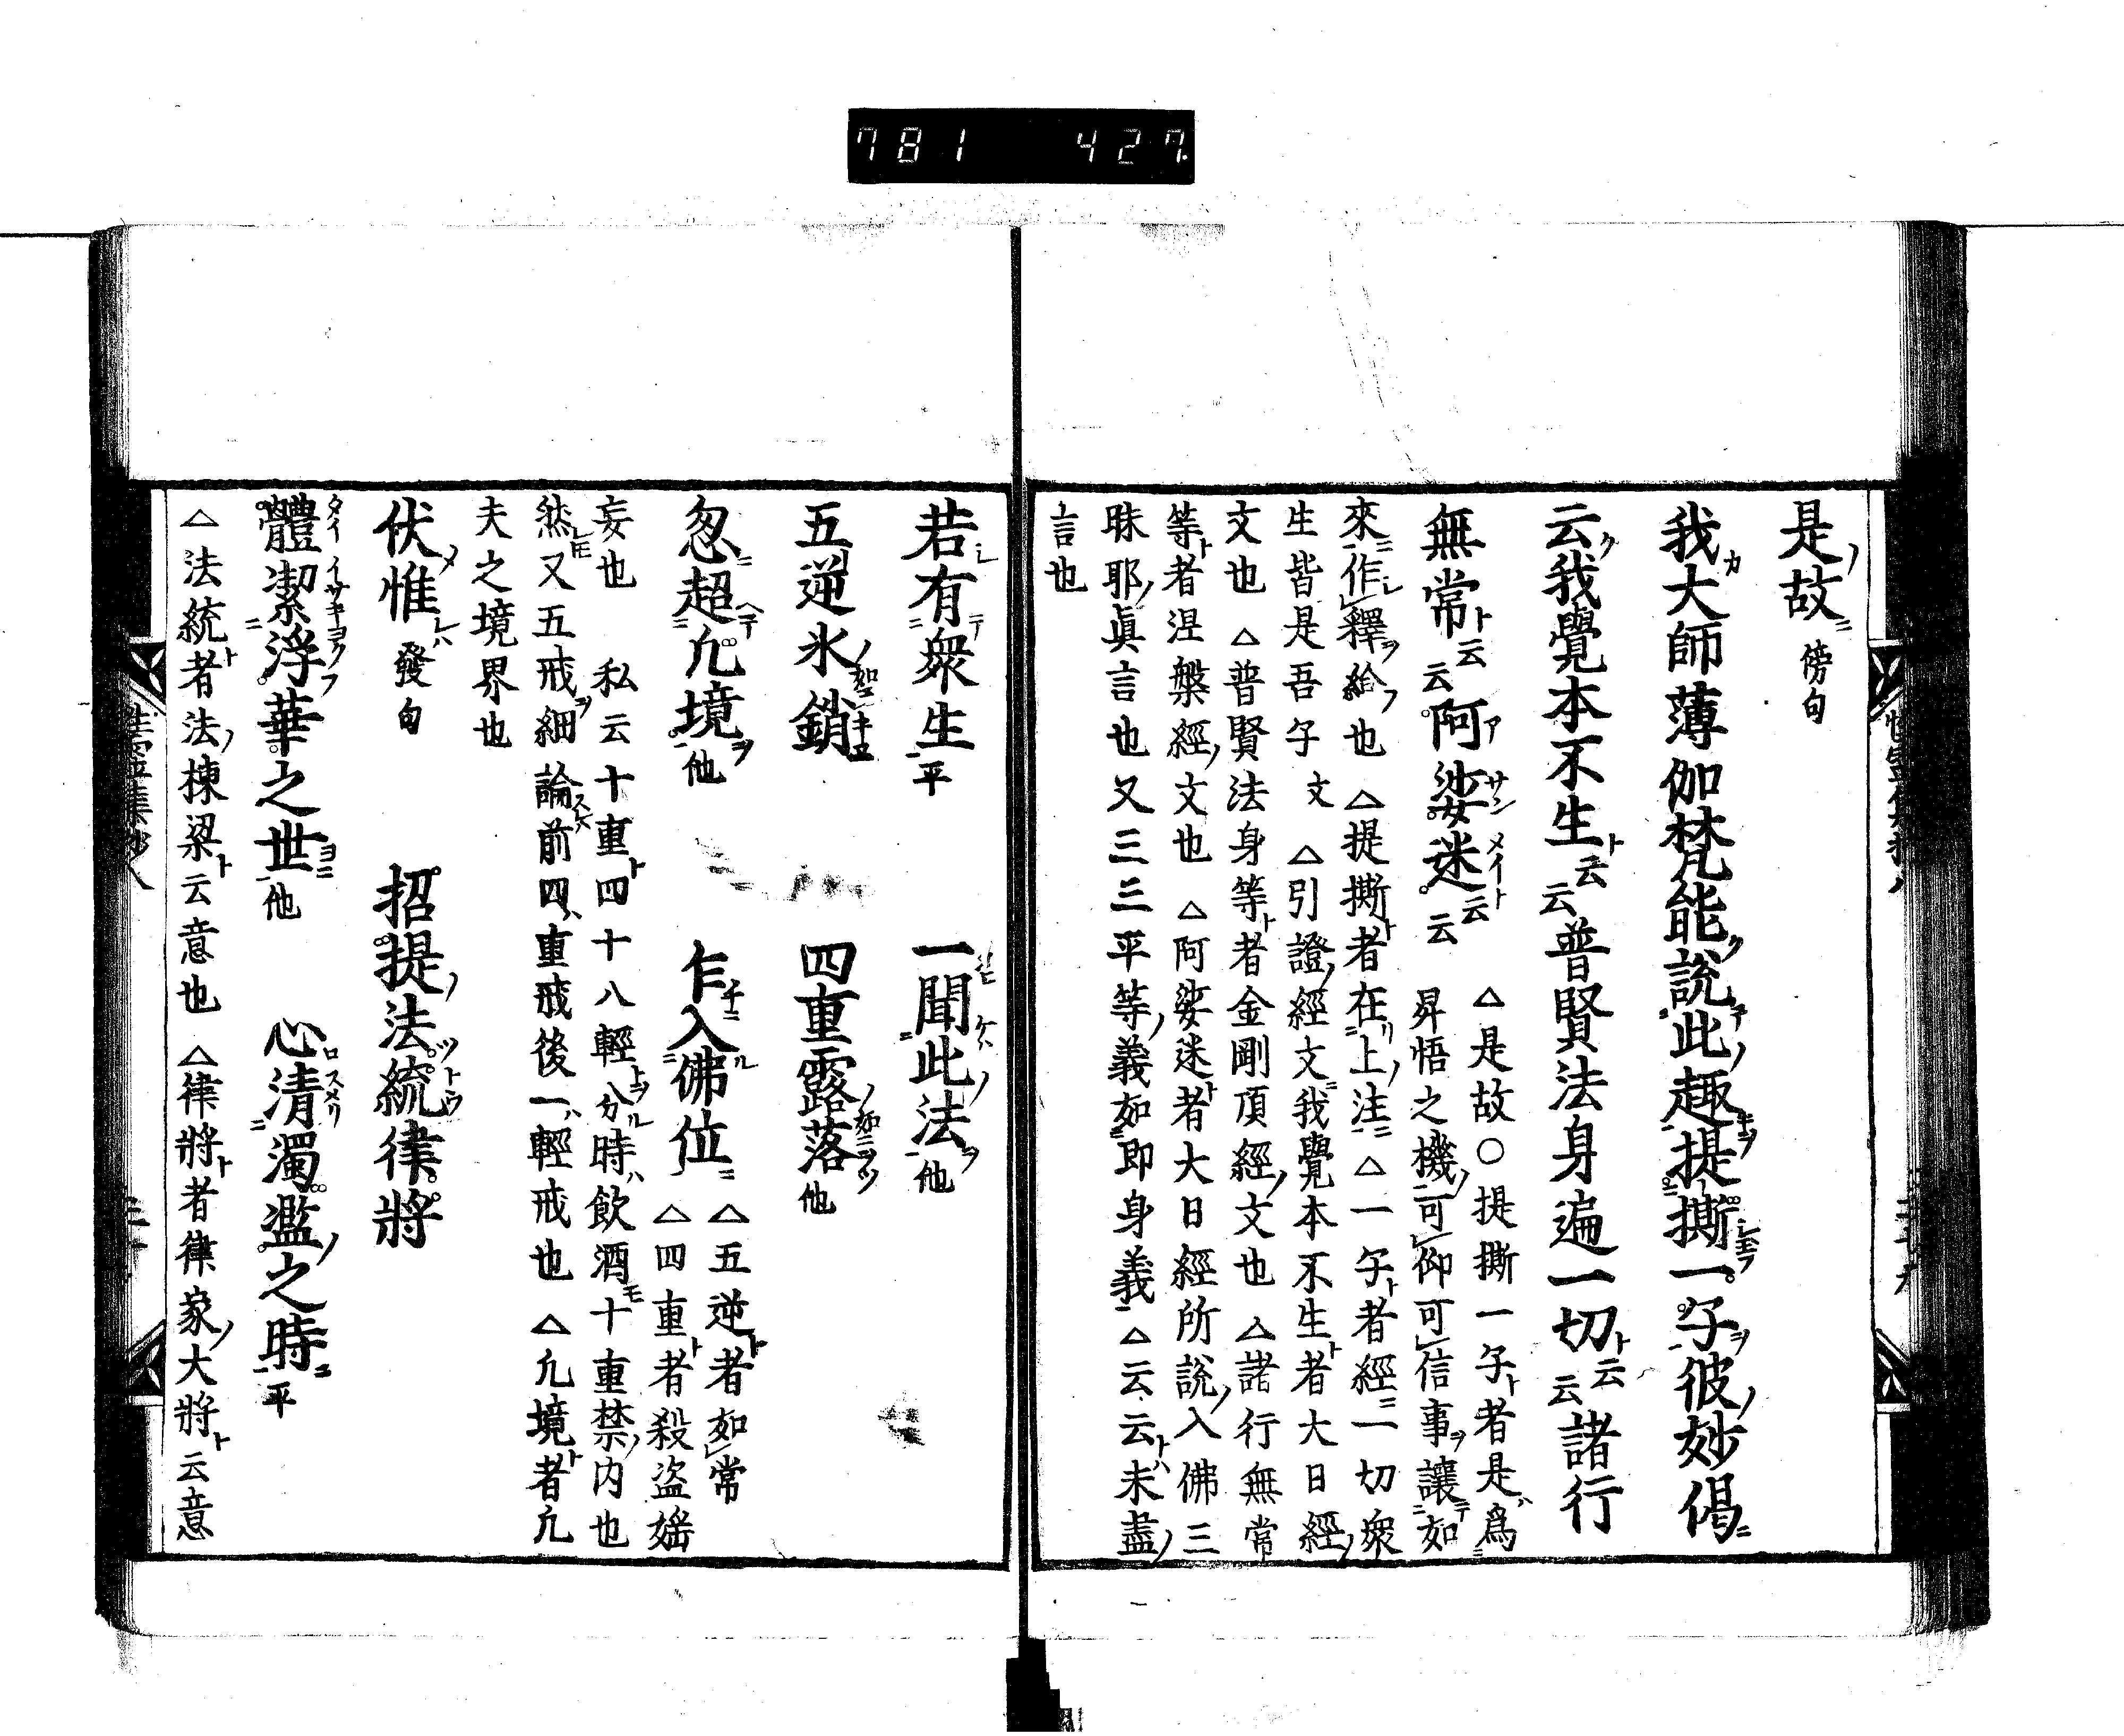 781 427
是故 傍句
我大師薄伽梵能說此趣提撕一子彼妙偈
云我覺本不生云云普賢法身遍一切云云諸行
無常云云阿娑迷云云 △是故○提撕一子者是爲
昇悟之機可仰可信事讓如
來作釋給也 △提撕者在上注 △一子者經一切衆
生皆是吾子文 △引證經文我覺本不生者大日經
文也 △普賢法身等者金剛頂經文也 △諸行無常
等者涅槃經文也 △阿娑迷者大日經所說入佛三
昧耶眞言也又三三平等義如即身義 △云云未盡
言也
若有衆生平 一聞此法他
五逆氷銷 四重露落他
忽超凢境他 乍入佛位 △五逆者如常
△四重者殺盗婬
妄也 私云十重四十八輕分時飲酒十重禁内也
然又五戒細論前四重戒後一輕戒也 △凢境者凢
夫之境界也
伏惟 發句 招提法統律將
體潔浮華之世他 心清濁濫之時平
△法統者法棟梁云意也 △律將者律家大將云意